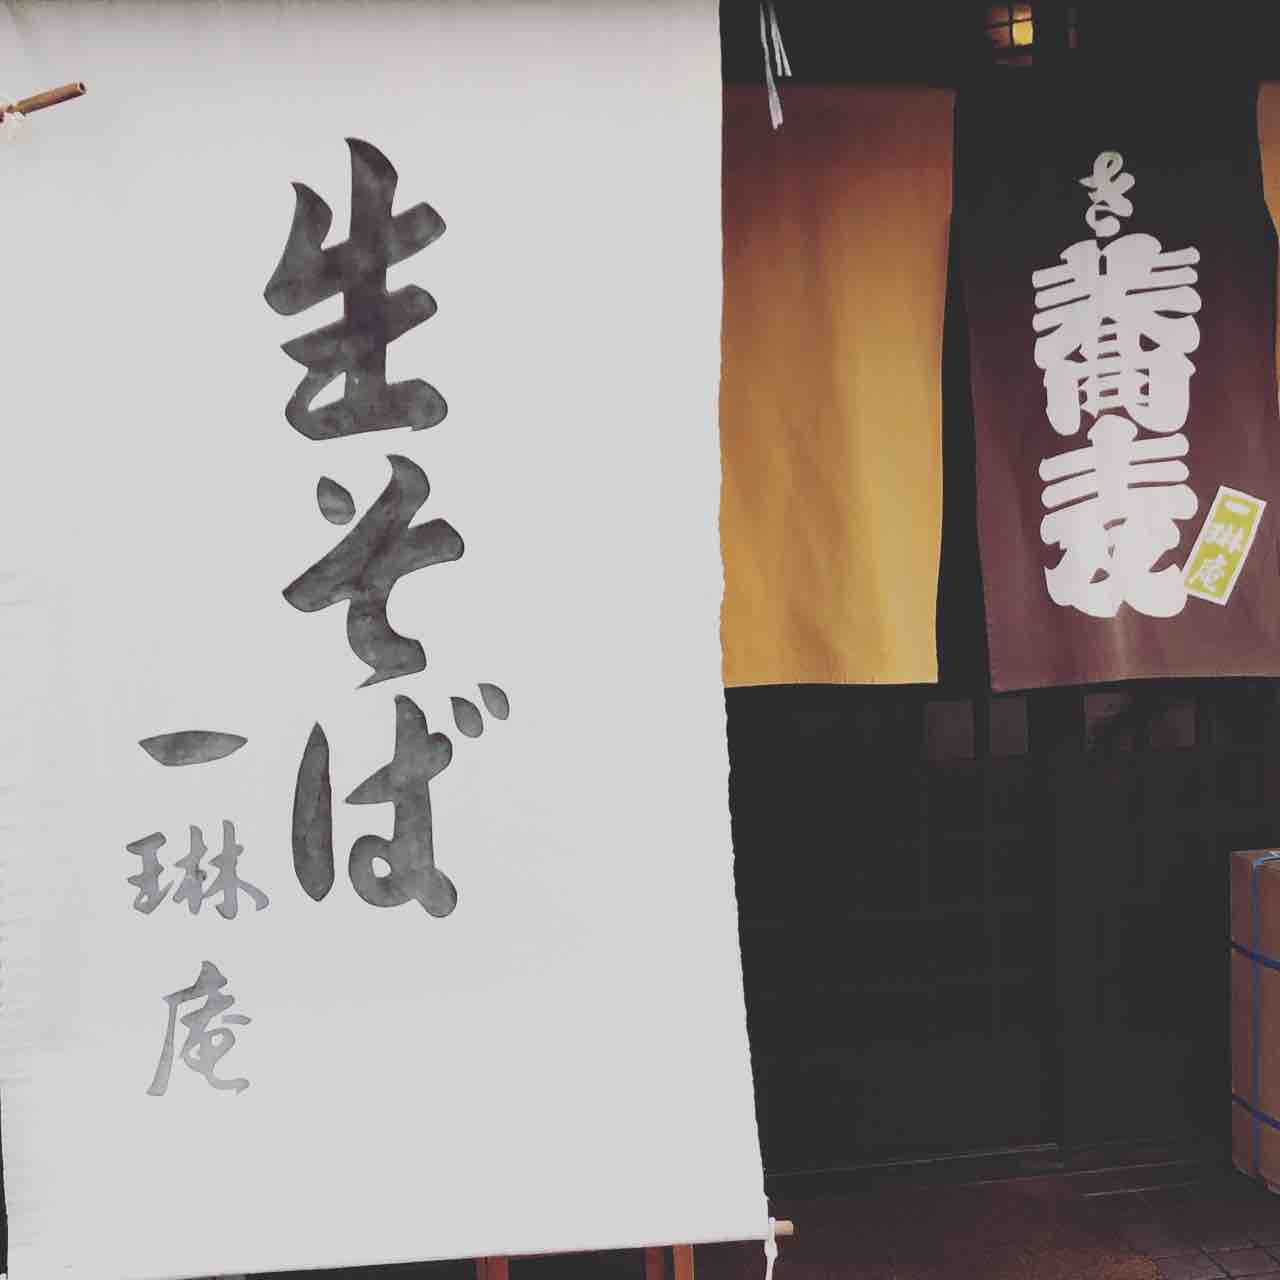 生そば
一琳庵
き蕎麦
一琳庵